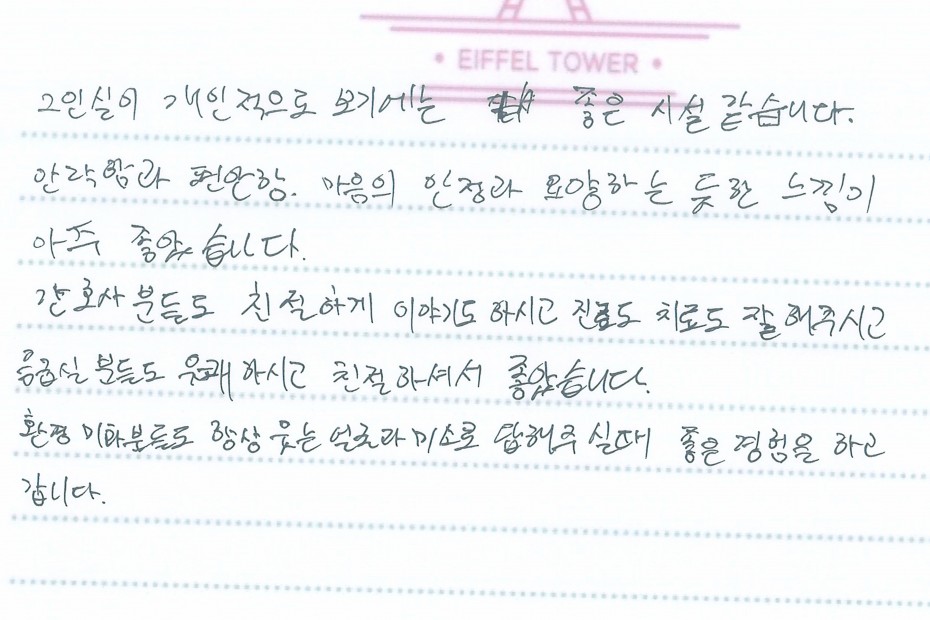 • EIFFEL TOWER •
2인실이 개인적으로 보기에는 좋은 시설 같습니다.
안락함과 편안함. 마음의 안정과 요양하는 듯한 느낌이
아주 좋았습니다.
간호사분들도 친절하게 이야기도 하시고 진료도 치료도 잘해주시고
응급실 분들도 유쾌하시고 친절하셔서 좋았습니다.
환경미화분들도 항상 웃는 얼굴과 미소로 답해주실때 좋은 경험을 하고
갑니다.